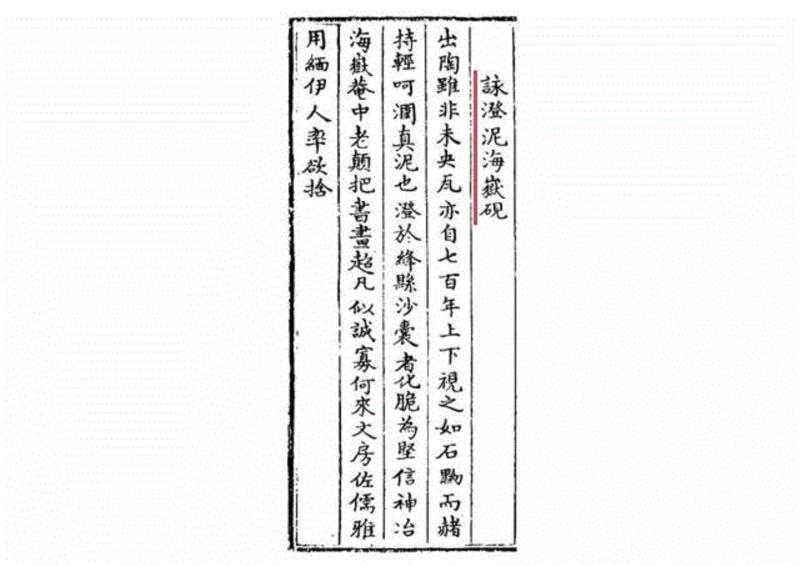 詠澄泥海嶽硯
出陶雖非未央瓦亦自七百年上下視之如石黝而赭
持輕呵潤真泥也澄於絳縣沙囊者化脆為堅信神冶
海嶽菴中老顛把書畫超凡似誠寡何來文房佐儒雅
用緬伊人率欲捨